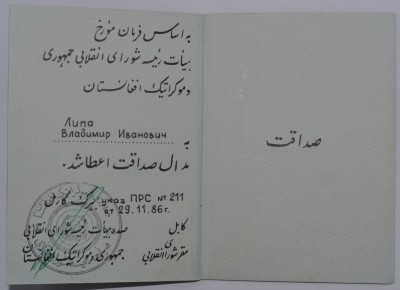 به اساس فرمان مؤرخ
هیأت رئیسه شورای انقلابی جمهوری
دموکراتیک افغانستان
Липа
Владимир Иванович
به
مدال صداقت اعطا شد.
ببرک کارمل указ ПРС № 211
от 29.11.86г.
کابل
صدر هیأت رئیسه شورای انقلابی
مقر شورای انقلابی
جمهوری دموکراتیک افغانستان
صداقت